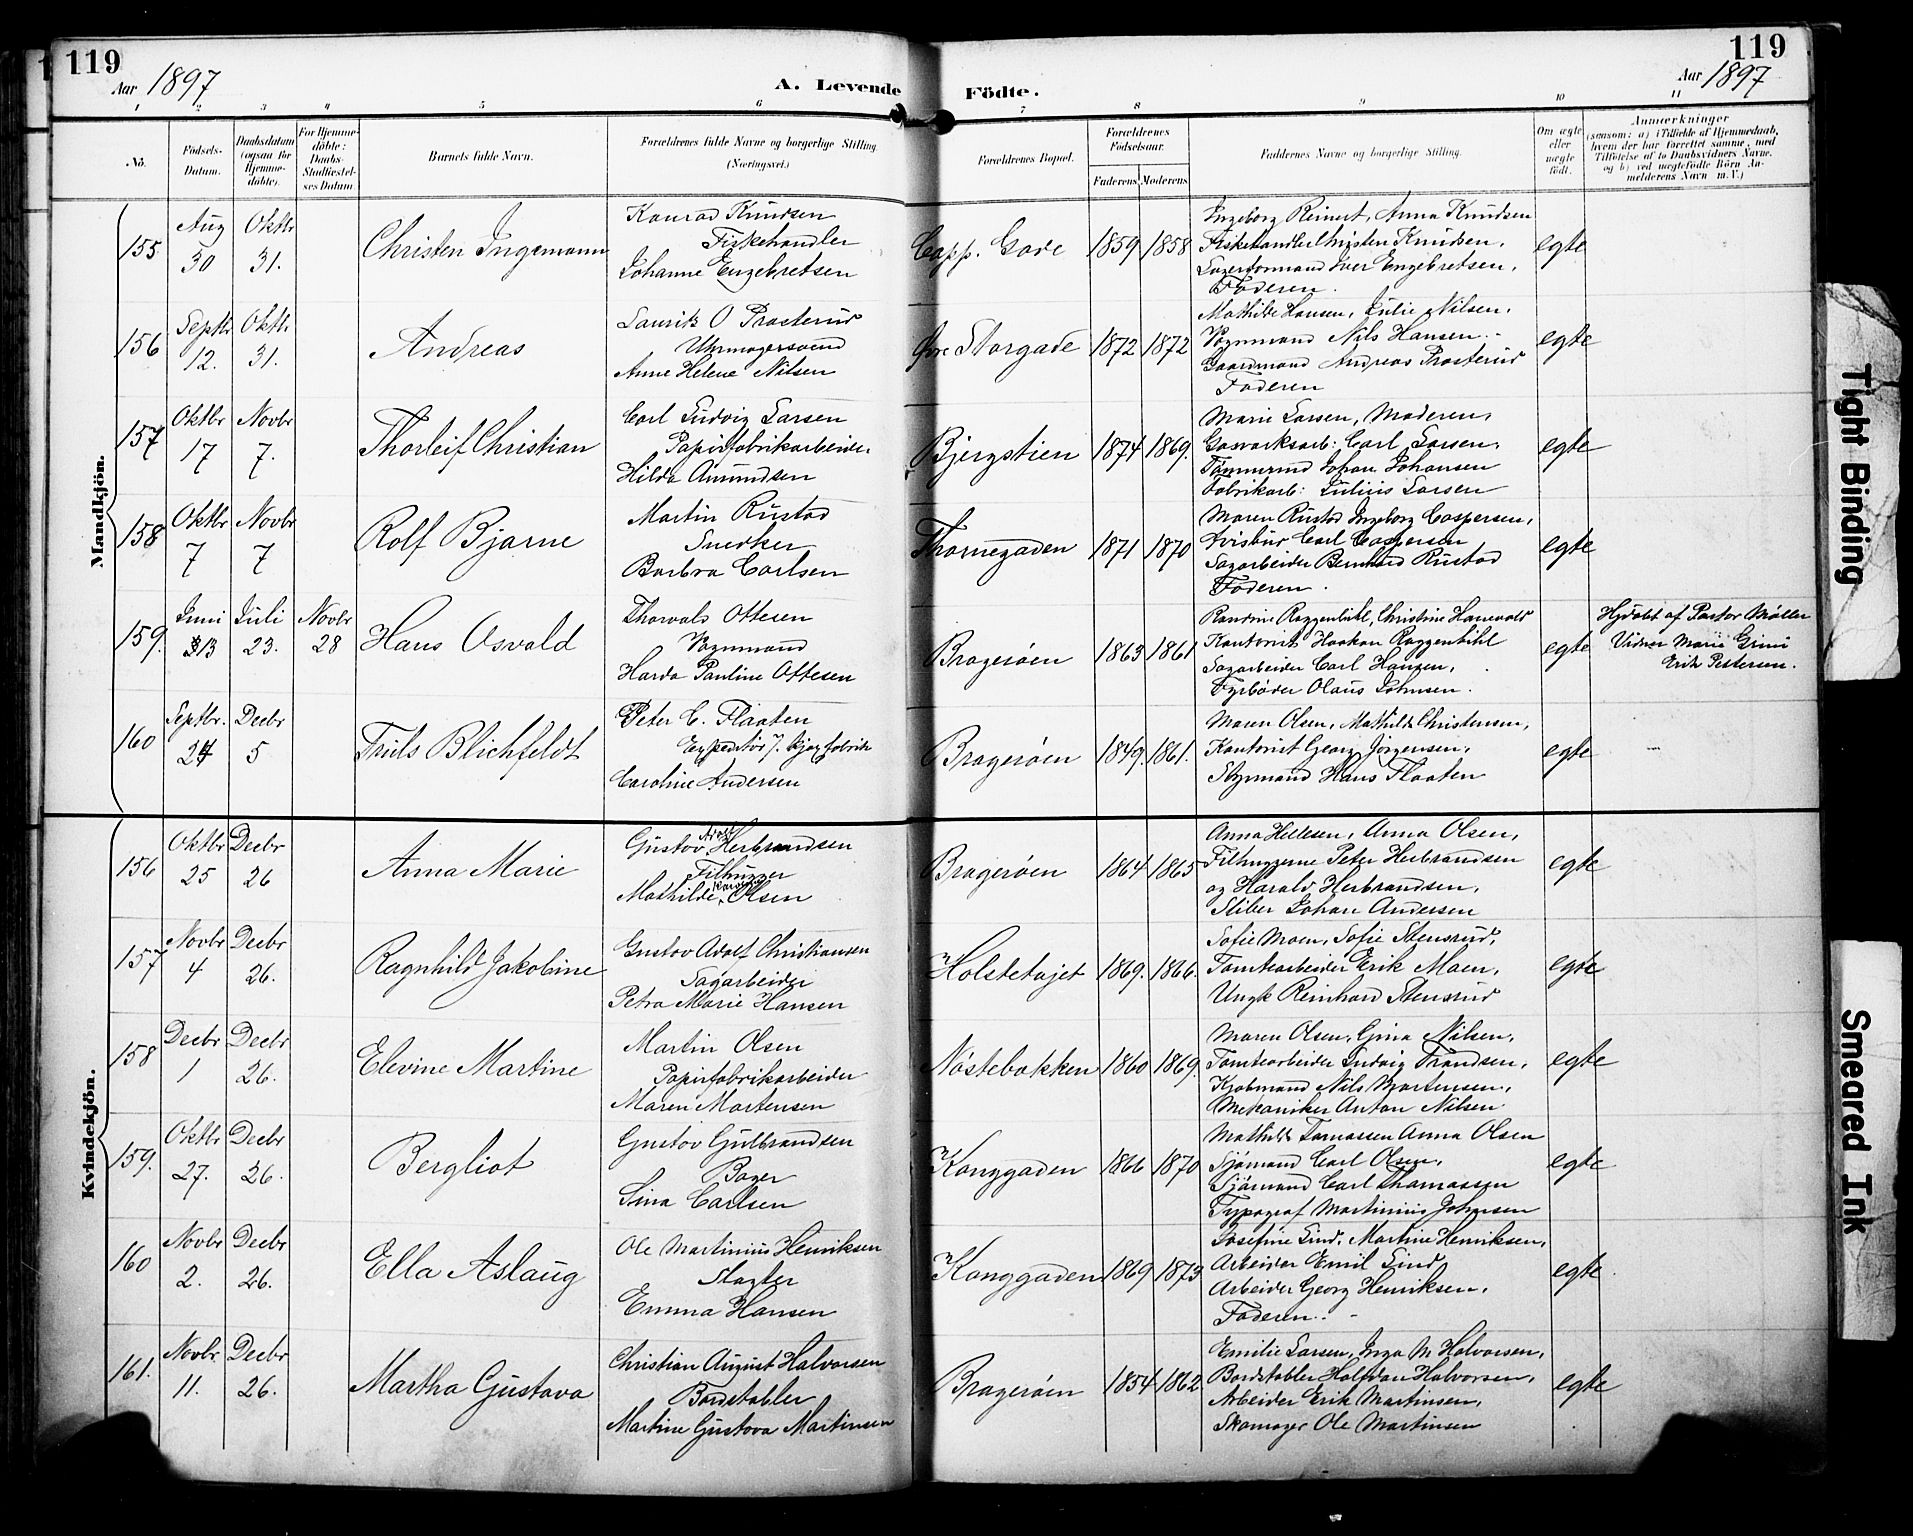 119
Aar 1897
A. Levende Födte.
119
Aar 1897
1 2 3 4 5 6 7 8 9 10 11
No.
Födsels-
Datum.
Daabsdatum
(ogsaa for
Hjemme-
döbte).
For Hjemme-
döbte:
Daabs-
Stadfæstel-
ses Datum
Barnets fulde Navn.
Forældrenes fulde Navne og borgerlige Stilling.
(Næringsvei.)
Forældrenes Bopæl.
Forældrenes
Födselsaar.
Faderens Moderens
Faddernes Navne og borgerlige Stilling.
Om ægte
eller
uægte
födt.
Anmærkninger
(saasom: a) i Tilfælde af Hjemmedaab,
hvem der har forrettet samme, med
Tilföielse af to Daabsvidners Navne.
og b) ved uægtefödte Börn An-
melderens Navn m. V.)
Mandkjön.
155
Aug 30
Oktbr 31.
Christen Ingemann
Konrad Knudsen
Fiskehandler
Johanne Engebretsen
Capp. Gade
1859 1858
Ingeborg Reinert, Anna Knudsen
Fiskehandler Christen Knudsen,
Iver Engebretsen,
Faderen.
egte
156
Septbr 12.
Oktbr 31.
Andreas
Laurits O Prosterud
Uhrmagersvend
Anne Helene Nilsen
Øvre Storgade
1872 1872
Mathilde Hansen, Julie Nilsen,
Vognmand Nils Hansen.
Gaardmand Andreas Prosterud
Faderen
egte
157
Oktbr 17
Novbr 7.
Thorleif Christian
Carl Ludvig Larsen
Papirfabrikarbeider
Hilda Amundsen
Bjergstien
1874 1869.
Marie Larsen, Moderen,
Gasverksarb: Carl Larsen.
Tømmermd Johan Johansen
Fabrikarb: Julius Larsen
egte
158
Oktbr 7
Novbr 7
Rolf Bjarne
Martin Rustad
Snedker
Barbra Carlsen
Thornegaden
1871 1870
Maren Rustad Ingeborg Caspersen,
Avisbud Carl Caspersen
Sagarbeider Bernhard Rustad
Faderen.
egte
159.
Juni 13
Juli 23.
Novbr 28
Hans Osvald
Thorvald Ottesen
Vognmand
Harda Pauline Ottesen
Bragerøen
1863 1861
Randine Roggenbihl, Christine Hanevold
Kontorist Haakon Roggenbihl
Sagarbeider Carl Hansen,
Fyrbøder Olaus Johnsen.
egte
Hjdøbt af Pastor Møller
Vidner Marie Grini
Erik Pettersen.
160
Septbr. 24
Decbr 5
Truls Blichfeldt
Peter C. Flaaten
Caroline Andersen
Bragerøen
1849. 1861.
Maren Olsen, Mathilde Christensen,
Kontorist Georg Jörgensen,
Styrmand Hans Flaaten
egte
Kvindekjön.
156
Oktbr 25
Decbr 26
Anna Marie
Gustav Adolf Herbrandsen
Filhugger
Mathilde Karoline Olsen
Bragerøen
1864 1865
Anna Hellesen, Anna Olsen,
Filhuggerne Peter Herbrandsen
og Harald Herbrandsen,
Sliber Johan Andersen
egte
157
Novbr 4
Decbr 26.
Ragnhild Jakobine
Gustav Adolf Christiansen
Sagarbeider
Petra Marie Hansen
Holstetøjet
1869. 1866.
Sofie Moen, Sofie Stensrud,
Tomtearbeider Erik Moen,
Ungk Reinhard Stensrud
egte
158
Decbr 1
Decbr 26.
Elevine Martine
Martin Olsen
Papirfabrikarbeider
Maren Mortensen
Nøstebakken
1860 1869.
Maren Olsen, Gina Nilsen,
Tomtearbeider Ludvig Trandsen,
Kjøbmand Nils Mortensen,
Mekaniker Anton Nilsen
egte
159.
Oktbr 27.
Decbr 26.
Bergliot
Gustav Gulbrandsen
Bager
Lina Carlsen
Konggaden
1866 1870
Mathilde Tomassen Anna Olsen
Sjømand Carl Olsen,
Sjømand Carl Thomassen
Typograf Martinius Johnsen
egte
160
Novbr 2.
Decbr 26.
Ella Aslaug
Ole Martinius Henriksen
Slagter
Emma Hansen
Konggaden
1869 1873
Josefine Lind, Martine Henriksen,
Arbeider Emil Lind,
Arbeider Georg Henriksen,
Faderen.
egte
161.
Novbr. 11.
Decbr 26.
Martha Gustava
Christian August Halvorsen
Bordstabler
Martine Gustava Martinsen
Bragerøen
1854 1862
Emilie Larsen, Inga M Halvorsen,
Bordstabler Halfdan Halvorsen,
Arbeider Erik Martinsen,
Skomager Ole Martinsen
egte
Tight Binding
Smeared Ink